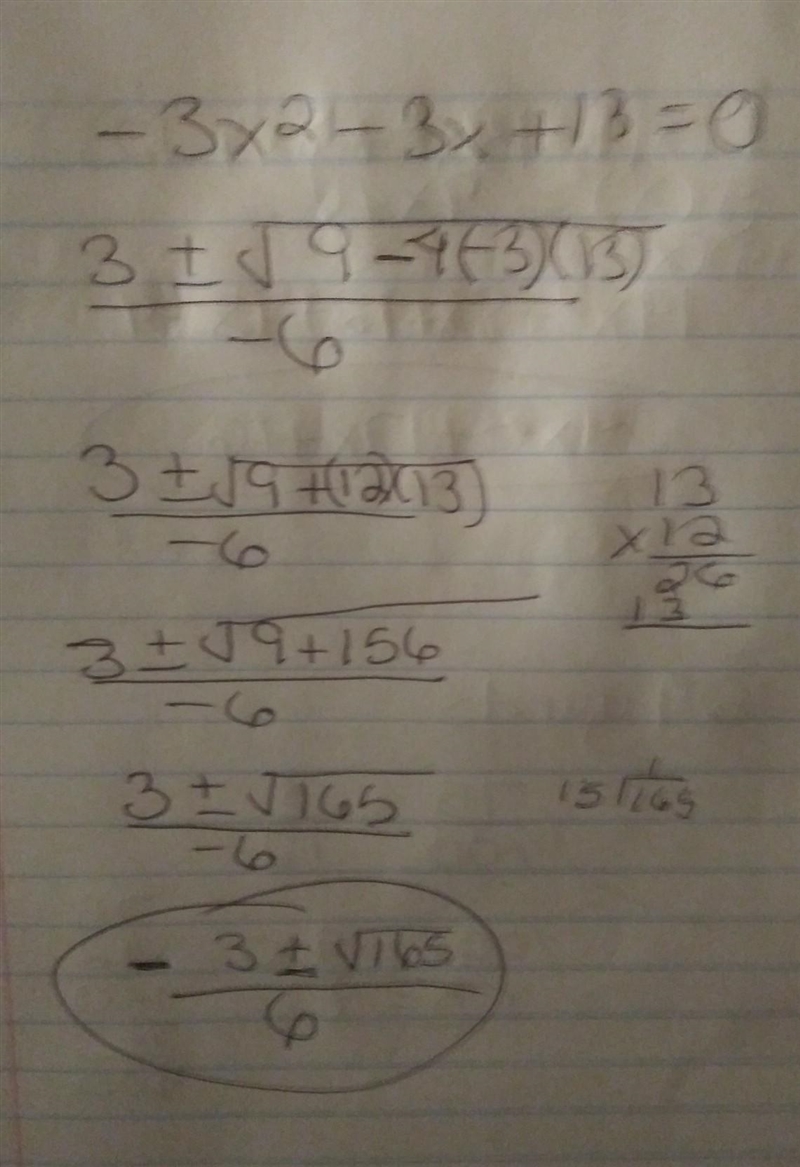 -3x2 - 3x + 13 = 0
3 ± √9 - 4(-3)(13)
-6
3 ± √9 + (12)(13)
-6
13
x 12
26
13
3 ± √9 + 156
-6
3 ± √165
-6
1
15 √165
- 3 ± √165
6